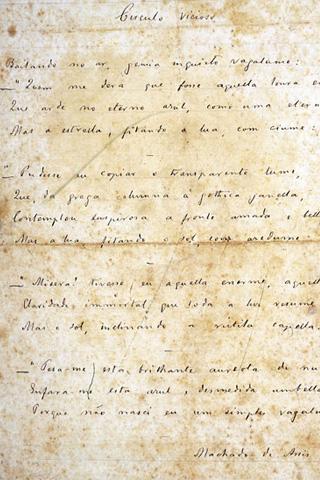 Circulo vicioso
Bailando no ar, gemia inquieto vagalume:
—"Quem me dera que fosse aquella loura
Que arde no eterno azul, como uma eterna
Mas a estrella, fitando a lua, com ciume:
—"Pudesse eu copiar o transparente lume,
Que, da grega columna á gothica janella,
Contemplou, suspirosa, a fronte amada e bella
Mas a lua, fitando o sol, com azedume:
—"Misera! tivesse eu aquella enorme, aquella
Claridade immortal, que toda a luz resume
Mas o sol, inclinando a rutila capella:
—"Pesa-me esta brilhante aureola de nu
Enfara-me esta azul e desmedida umbella
Porque não nasci eu um simples vagalu
Machado de Assis